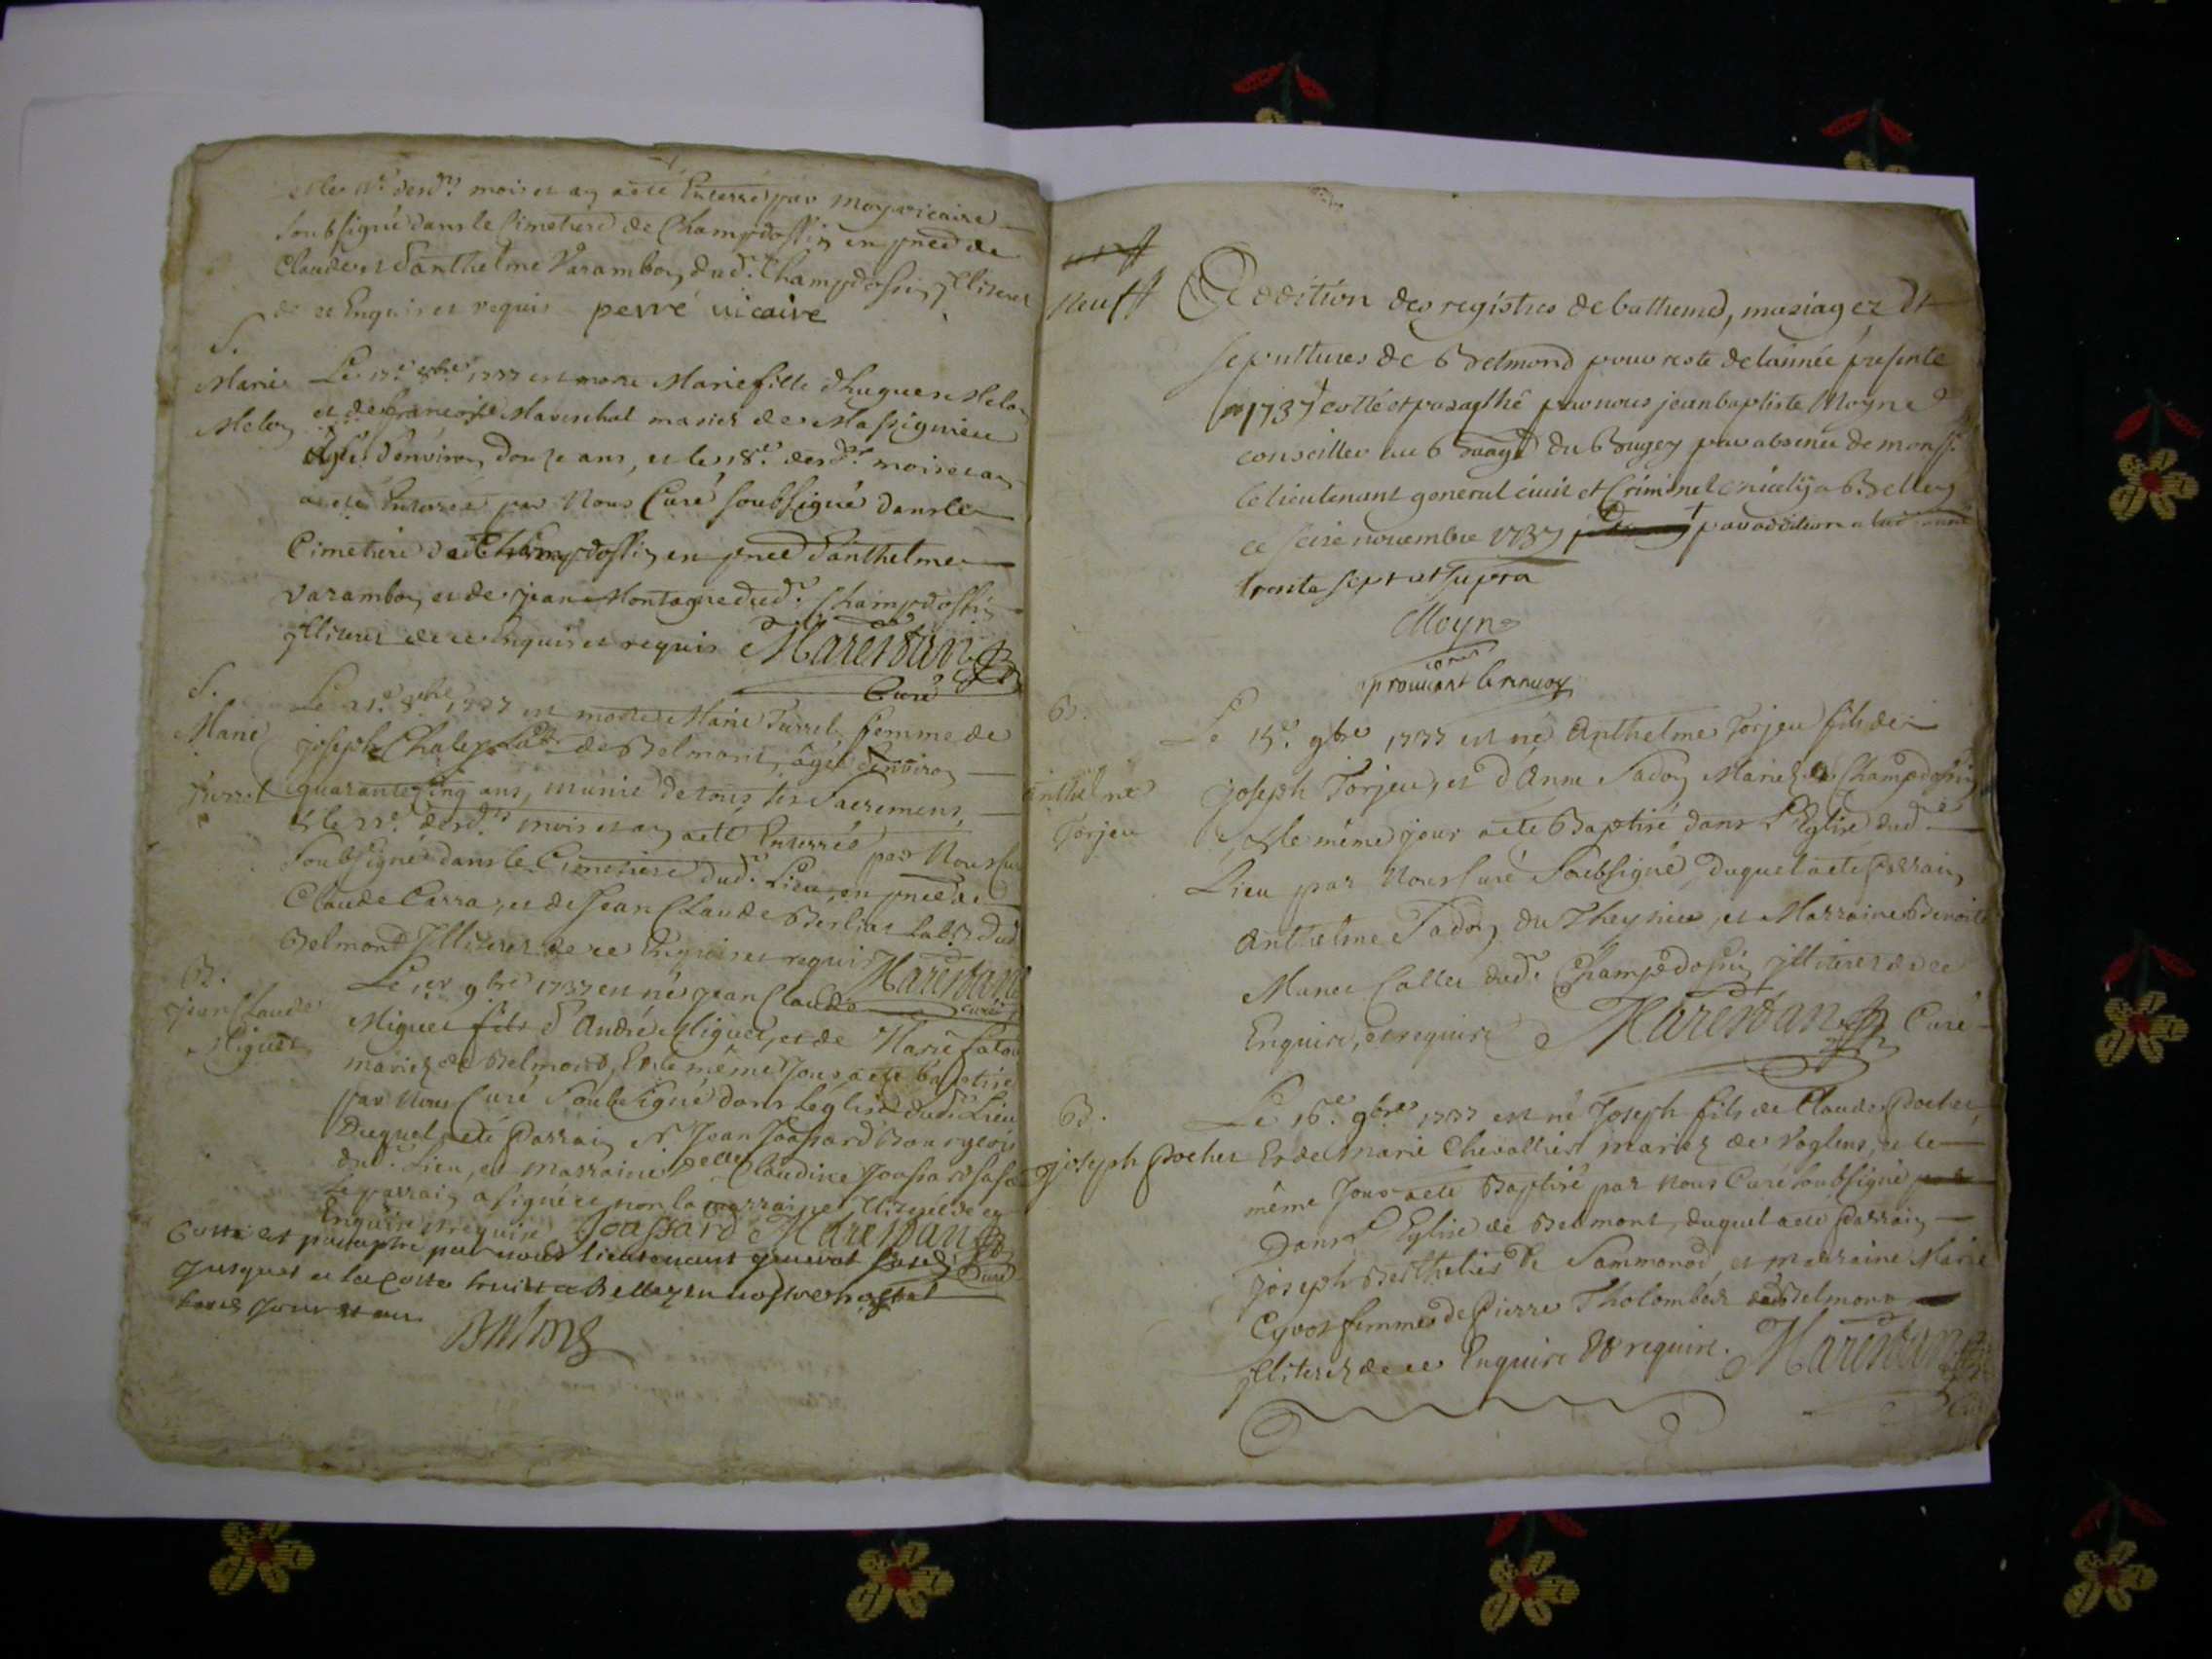 mois et an a eté Enterré par moy vicaire
soubsigné dans le Cimetiere de Champdossin en pnce de
Claude et d'anthelme Varambon dud. Champdossin Jlliterez
de ce Enquis et requis perré vicaire
S.
Marie
Melon
Le 17e 8bre 1737 est morte Marie fille d'hugues Melon
et de françoise Mareschal mariez de Massignieu
agée d'environ douze ans, et le 18e desd. mois et an
a eté Enterrée par Nous Curé soubsigné dans le
Cimetiere de Champdossin en pnce d'anthelme
varambon et de jean Montagne dud. Champdossin
jlliterez de ce Enquis et requis Marestan
Curé
S.
Marie
Turrel
Le 21e 8bre 1737 est morte Marie Turrel femme de
joseph Chaley de Belmont, agée d'environ
quarante cinq ans, munie de tous les Sacremens,
et le 22e desd. mois et an a eté Enterrée par Nous Curé
Soubsigné dans le Cimetiere dud. Lieu en pnce de
Claude Carra, et de Jean Claude Berlias Lab. dud.
Belmond Jlliterez de ce Enquis et requis Marestan
curé
B.
jean Claude
Miguet
Le 1er 9bre 1737 est né jean Claude
Miguet fils d'André Miguet, et de Marie
mariez de Belmond, Et le même Jour a eté baptisé
par Nous Curé Soubsigné dans leglise dud. Lieu
Duquel a eté Parrain Sr Jean Joassard Bourgeois
dud. Lieu, et marraine delle Claudine Joassard
le parrain a signé et non la marraine Jlliterée de ce
Enquise et requise Joassard Marestan
Curé
Cotté et paraphé par nous lieutenant general
jusques a la cotte huit a Belley en nostre hostel
les jour et an
neuff
Addition des registres de bathemes, mariagez et
sepultures de Belmond pour reste de lannée presente
1737 cotté et paraphé par nous jean baptiste Moyne
conseiller au du Bugey par absence de monsr.
le lieutenant general civil et Criminel a Belley
ce seize novembre 1737 par addition
trente sept ut supra
Moyne
B.
Anthelme
Torjeu
Le 15e 9bre 1737 est né Anthelme Torjeu fils de
joseph Torjeu, et d'Anne Sadon Mariez de Champdossin
et le même jour a eté Baptisé dans L'Eglise dud.
Lieu par Nous Curé Soubsigné, Duquel a eté Parrain
Anthelme Sadon du Theynieu, et Marraine Benoite
Callet dud. Champdossin jlliterez de ce
Enquis, et requis Marestan Curé
B.
joseph Pochet
Le 16e 9bre 1737 est né Joseph fils de Claude Pochet,
Et de Marie Chevallier mariez de Voglens, et le
même Jour a eté Baptisé par Nous Curé soubsigné
Dans L'Eglise de Belmont, duquel a eté Parrain
joseph Berthelier de Sammonod et marraine Marie
Cyvoz femme de Pierre Tholombert de Belmont
jlliterez de ce Enquis et requis. Marestan